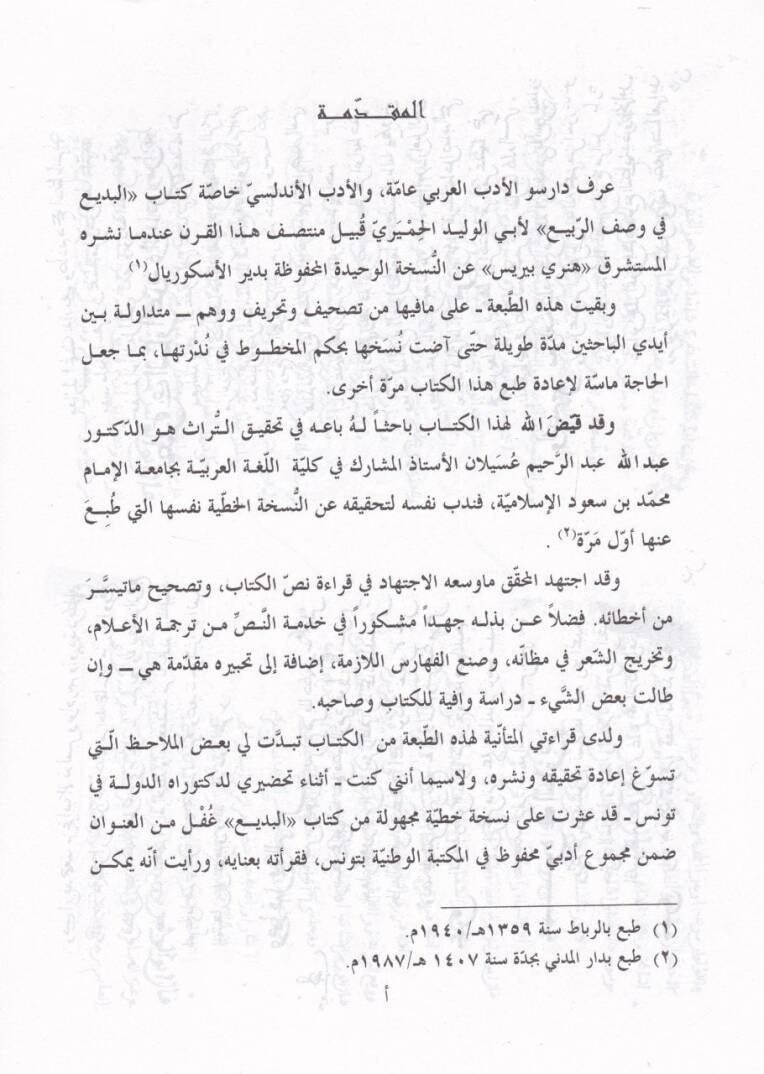 المقدّمة
عرف دارسو الأدب العربي عامّة، والأدب الأندلسيّ خاصّة كتاب «البديع
في وصف الرّبيع» لأبي الوليد الحِمْيَريّ قُبيل منتصف هذا القرن عندما نشره
المستشرق «هنري بيريس» عن النُّسخة الوحيدة المحفوظة بدير الأسكوريال(١)
وبقيت هذه الطّبعة ـ على مافيها من تصحيف وتحريف ووهم ـ متداولة بين
أيدي الباحثين مدّة طويلة حتّى آضت نُسَخها بحكم المخطوط في نُدْرتها، بما جعل
الحاجة ماسّة لإعادة طبع هذا الكتاب مرّة أخرى.
وقد قيّضَ الله لهذا الكتاب باحثاً لهُ باعه في تحقيق التُّراث هو الدّكتور
عبد الله عبد الرَّحيم عُسَيلان الأستاذ المشارك في كليّة اللّغة العربيّة بجامعة الإمام
محمّد بن سعود الإسلاميّة، فندب نفسه لتحقيقه عن النُّسخة الخطّية نفسها التي طُبِعَ
عنها أوّل مَرّة(٢) .
وقد اجتهد المحقّق ماوسعه الاجتهاد في قراءة نصّ الكتاب، وتصحيح ماتيسَّرَ
من أخطائه. فضلاً عن بذله جهداً مشكوراً في خدمة النَّصِّ من ترجمة الأعلام،
وتخريج الشّعر في مظانّه، وصنع الفهارس اللازمة، إضافة إلى تحبيره مقدّمة هي ـ وإن
طالت بعض الشَّيء ـ دراسة وافية للكتاب وصاحبه.
ولدى قراءتي المتأنّية لهذه الطّبعة من الكتاب تبدَّت لي بعض الملاحظ الّتي
تسوّغ إعادة تحقيقه ونشره، ولاسيما أنني كنت ـ أثناء تحضيري لدكتوراه الدولة في
تونس ـ قد عثرت على نسخة خطيّة مجهولة من كتاب «البديع» غُفْل من العنوان
ضمن مجموع أدبيّ محفوظ في المكتبة الوطنيّة بتونس، فقرأته بعنايه، ورأيت أنّه يمكن
(١) طبع بالرباط سنة ١٣٥٩هـ/١٩٤٠م.
(٢) طبع بدار المدني بجدّة سنة ١٤٠٧ هـ/١٩٨٧م.
أ